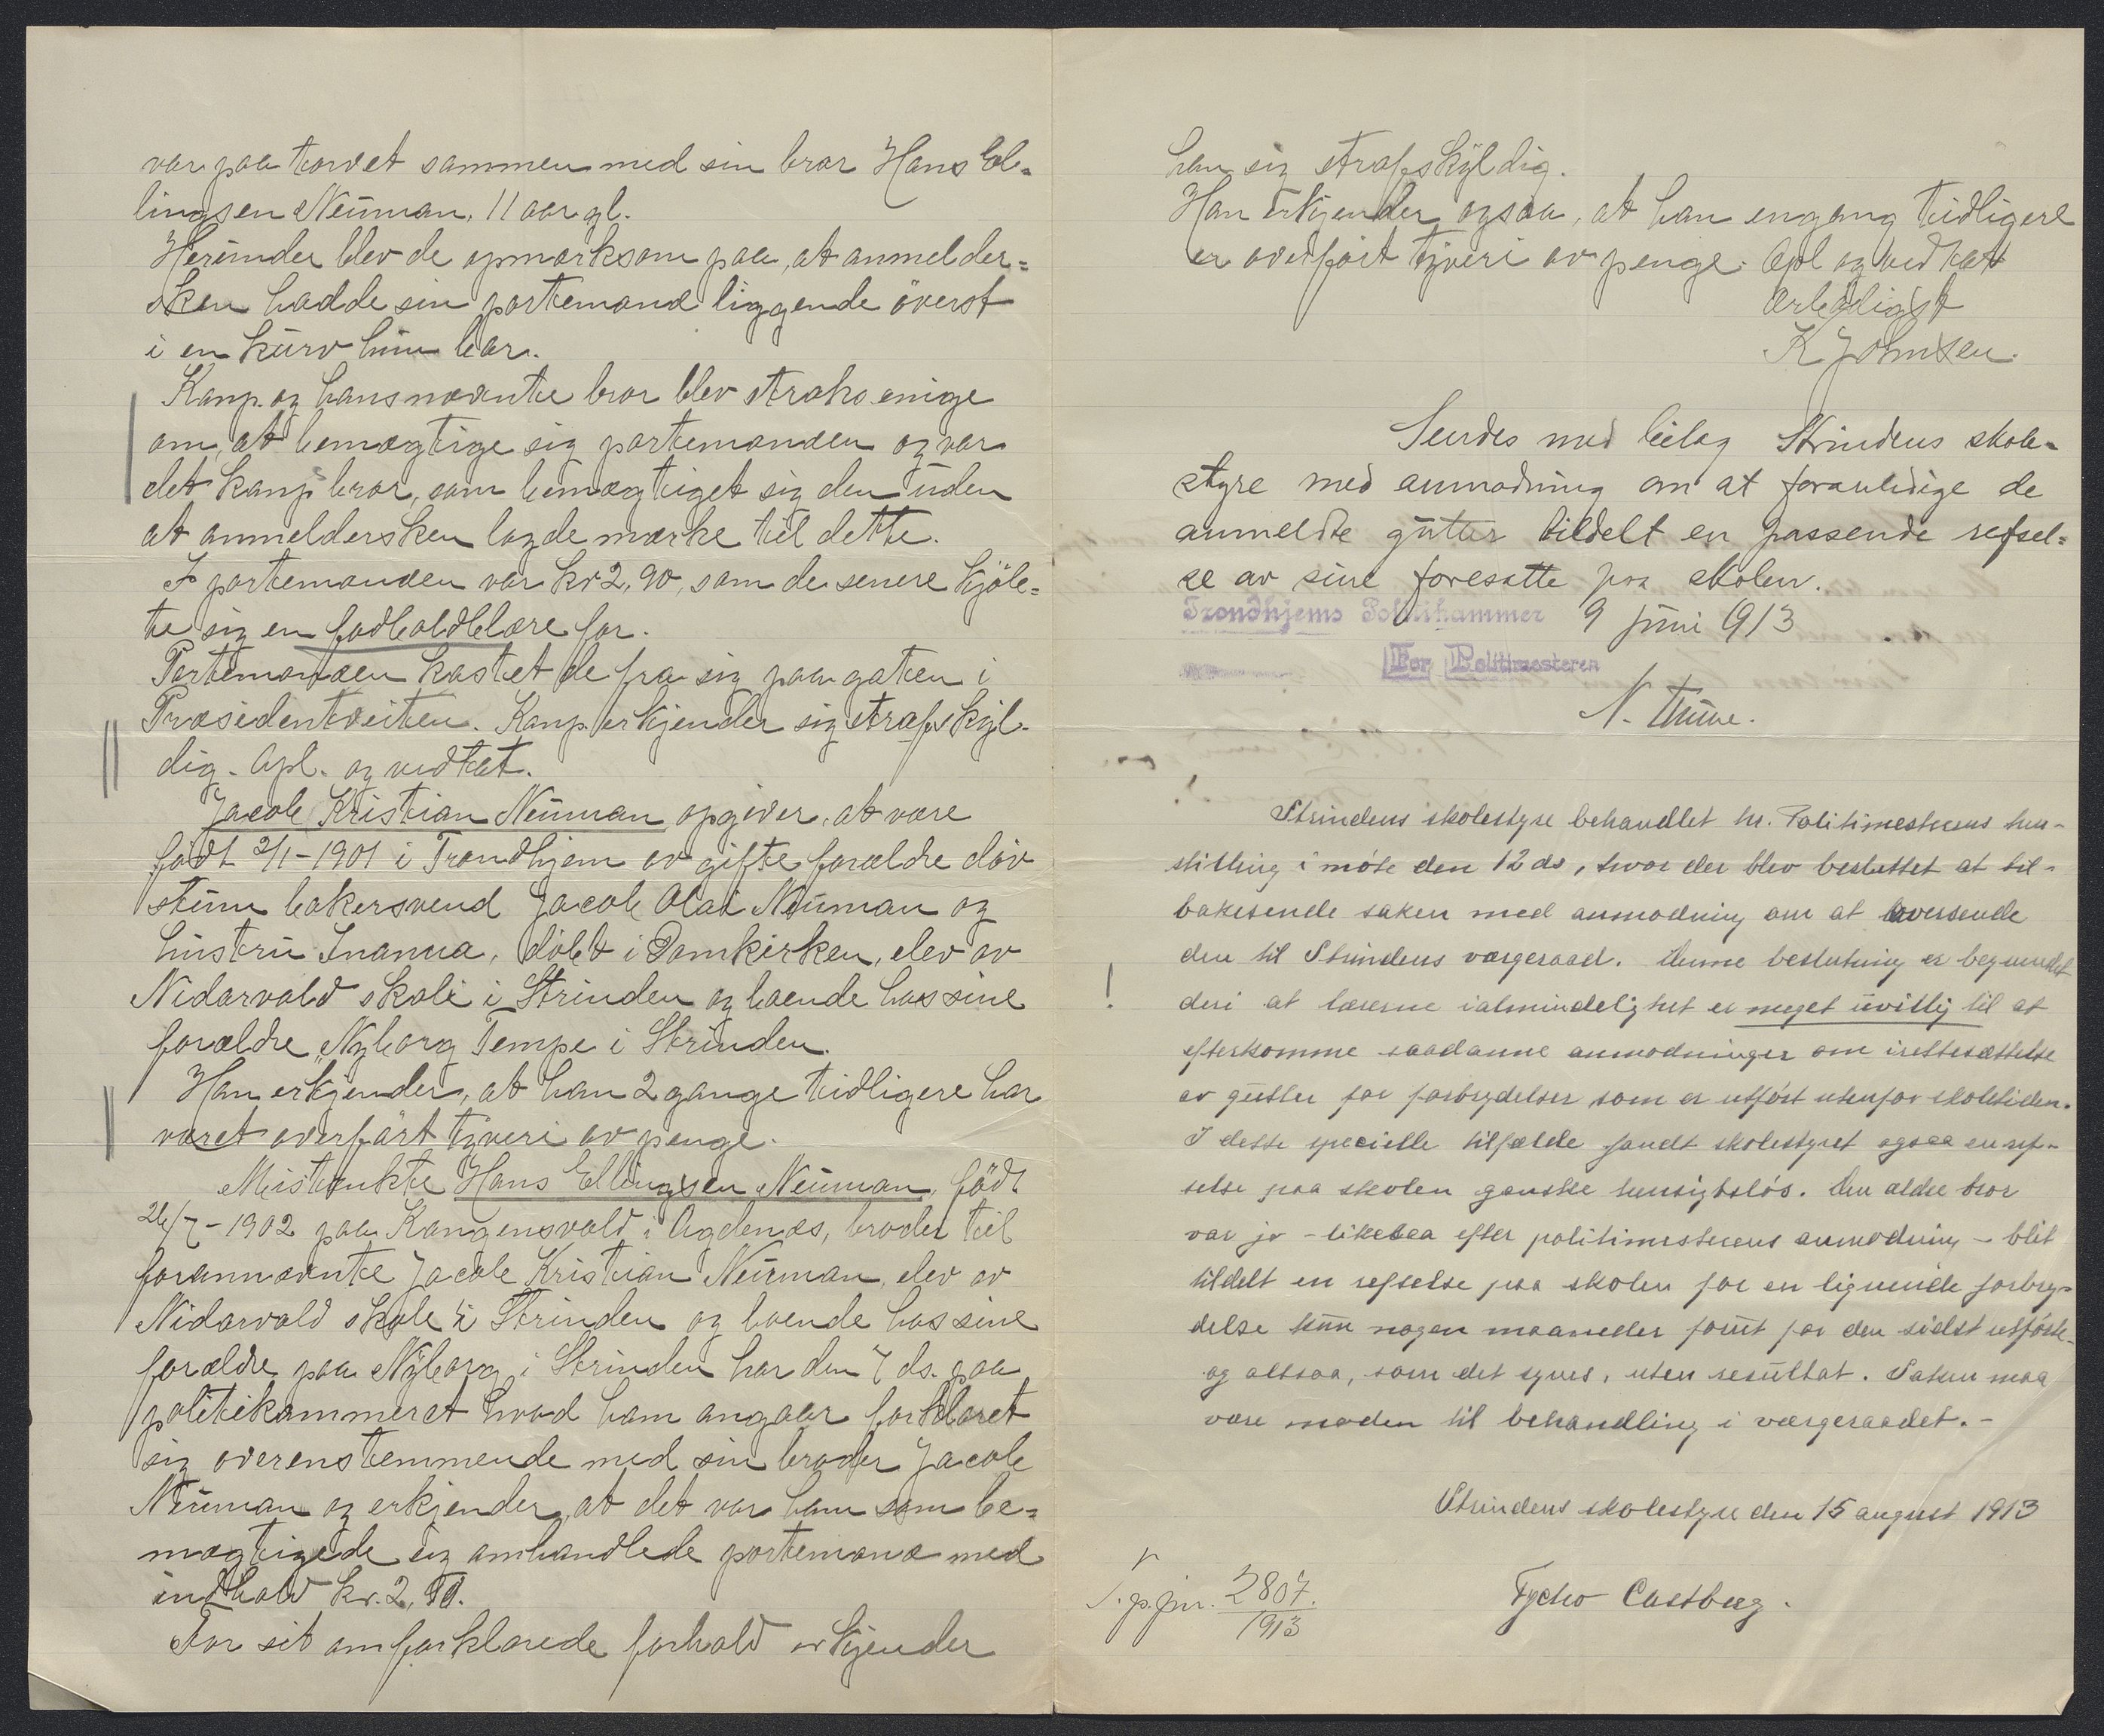 var paa torvet sammen med sin bror Hans El-
lingsen Neuman, 11 aar gl.
Herunder blev de opmerksom paa, at anmelder-
sken hadde sin portemonæ liggende överst
i en kurv hun bar.
Komp. og hans nævnte bror blev straks enige
om, at bemægtige sig portemonæen og var
det komp. bror, som bemægtiget sig den uden
at anmeldersken lagde mærke til dette.
I portemonæen var kr 2,90, som de senere kjöb-
te sig en fodboldblære for.
Portemonæen kastet de fra sig paa gaten i
Præsidentveiten. Komp. erkjender sig strafskyl-
dig. Opl. og vedtat.
Jacob Kristian Neuman opgiver, at være
födt 2/1-1901 i Trondhjem av gifte forældre döv
stum bakersvend Jacob Olai Neuman og
hustru Inanna, döbt i Domkirken, elev av
Nidarvold skole i Strinden og boende hos sine
forældre, Nyborg Tempe i Strinden.
Han erkjender, at han 2 gange tidligere har
været overfört tyveri av penge.
Mistænkte Hans Ellingsen Neuman, födt
26/7-1902 paa Kongensvold i Agdenæs, broder til
forannævnte Jacob Kristian Neuman, elev av
Nidarvold skole i Strinden og boende hos sine
forældre paa Nyborg i Strinden har den 7 ds. paa
politikammeret hvad ham angaar forklaret
sig overenstemmende med sin broder Jacob
Neuman og erkjender, at det var ham som be-
mægtigede sig omhandlede portemonæ med
indhold kr. 2,90.
For sit omforklarede forhold erkjender
han sig strafskyldig.
Han erkjender ogsaa, at han engang tidligere
er overfört tyveri av penge. Opl og vedtat
Ærbödigst
K Johnsen.
Sendes med bilag Strindens skole-
styre med anmodning om at foranledige de
anmeldte gutter tildelt en passende refsel-
se av sine foresatte paa skolen.
Trondhjems Politikammer 9 juni 1913
For Politimesteren
N. Thune.
Strindens skolestyre behandlet hr. Politimesterens hen-
stilling i möte den 12 ds, hvor der blev besluttet at til-
bakesende saken med anmodning om at oversende
den til Strindens vergeraad. Denne beslutning er begrundet
deri at lærerne ialmindelighet er meget uvillig til at
efterkomme saadanne anmodninger om irettesættelse
av gutter for forbrydelser som er utfört utenfor skoletiden.
I dette specielle tilfælde fandt skolestyret ogsaa en ref-
selse paa skolen ganske hensigtslös. Den ældre bror
var jo - likesaa efter politimesterens anmodning - blit
tildelt en refselse paa skolen for en lignende forbry-
delse kun nogen maaneder forut for den sidst utförte
og altsaa, som det synes, uten resultat. Saken maa
være moden til behandling i værgeraadet. -
Strindens skolestyre den 15 august 1913
Tycho Castberg.
J. p. jnr. 2807.
1913